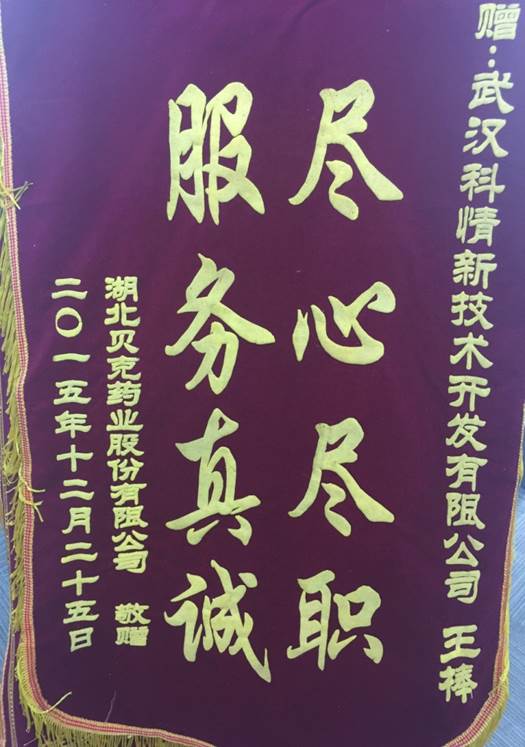 赠:武汉科情新技术开发有限公司 王棒
尽心尽职
服务真诚
湖北贝克药业股份有限公司 敬赠
二〇一五年十二月二十五日